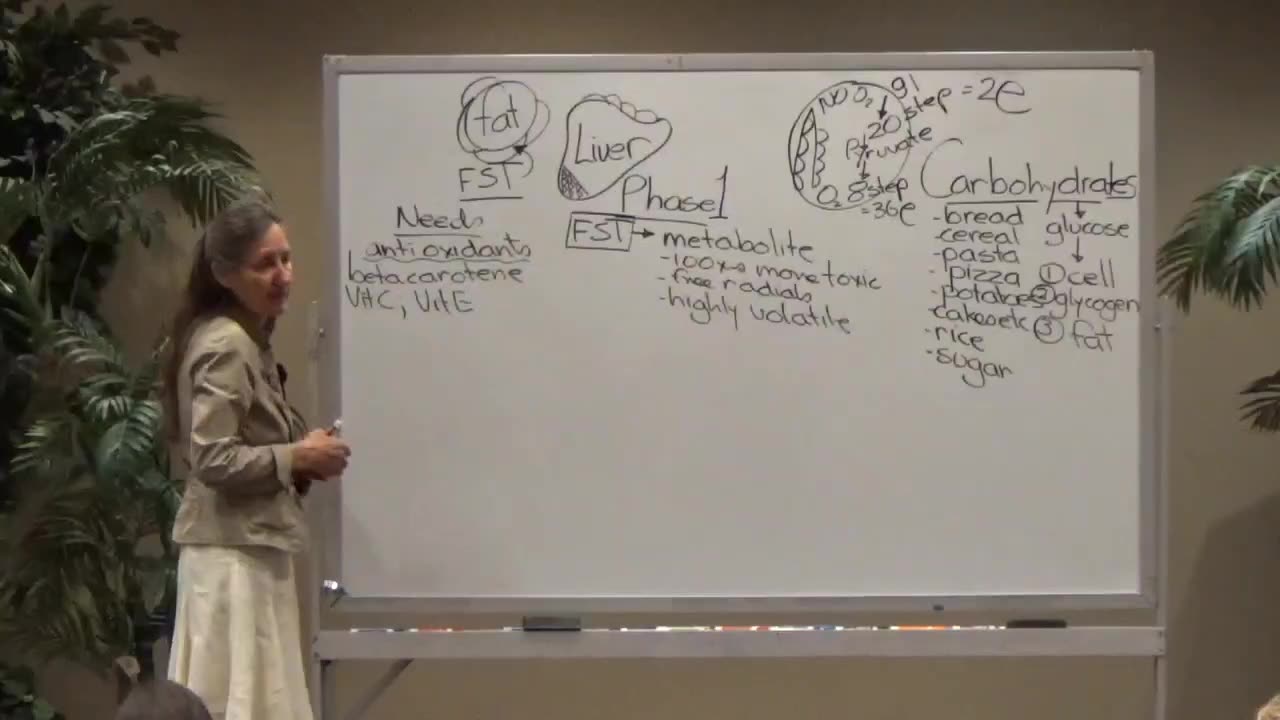 fat
FST
Needs
antioxidants
betacarotene
Vit C, Vit E
Liver
Phase 1
FST → metabolite
- 100xs more toxic
- free radials
- highly volatile
NO O₂
gl
20 step = 2e
Pyruvate
O₂ 8 step
= 36e
Carbohydrates
- bread
- cereal
- pasta
- pizza
- potatoes
- cakes etc
- rice
- sugar
glucose
① cell
② glycogen
③ fat